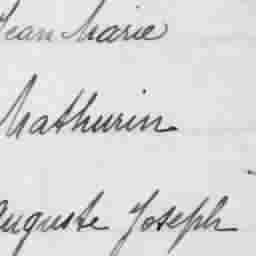 Jean Marie
Mathurin
Auguste Joseph